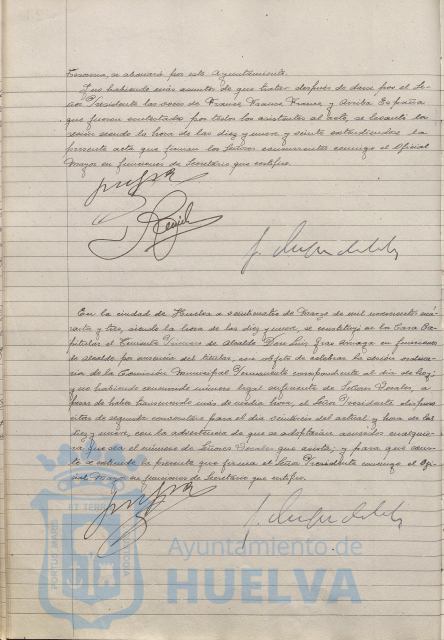 Tesorería, se abonará por este Ayuntamiento.
Y no habiendo más asuntos de que tratar después de darse por el Se-
ñor Presidente las voces de Franco Franco Franco y Arriba España
que fueron contestadas por todos los asistentes al acto, se levantó la
sesión siendo la hora de las diez y nueve y veinte extendiéndose la
presente acta que firman los Señores concurrentes conmigo el Oficial
Mayor en funciones de Secretario que certifico.
En la ciudad de Huelva a veinticuatro de Marzo de mil novecientos cua-
renta y tres, siendo la hora de las diez y nueve, se constituyó en la Casa Ca-
pitular el Teniente Primero de Alcalde Don Luis en funciones
de alcalde por ausencia del titular, con objeto de celebrar la sesión ordina-
ria de la Comisión Municipal Permanente correspondiente al día de hoy;
y no habiendo concurrido número legal suficiente de Señores Vocales, a
pesar de haber transcurrido más de media hora, el Señor Presidente dispuso
citar de segunda convocatoria para el día del actual y hora de las
diez y nueve, con la advertencia de que se adoptarían acuerdos cualquie-
ra que sea el número de Señores Vocales que asista; y para que cons-
te se extiende la presente que firma el Señor Presidente conmigo el Ofi-
cial Mayor en funciones de Secretario que certifico.
Ayuntamiento de
HUELVA